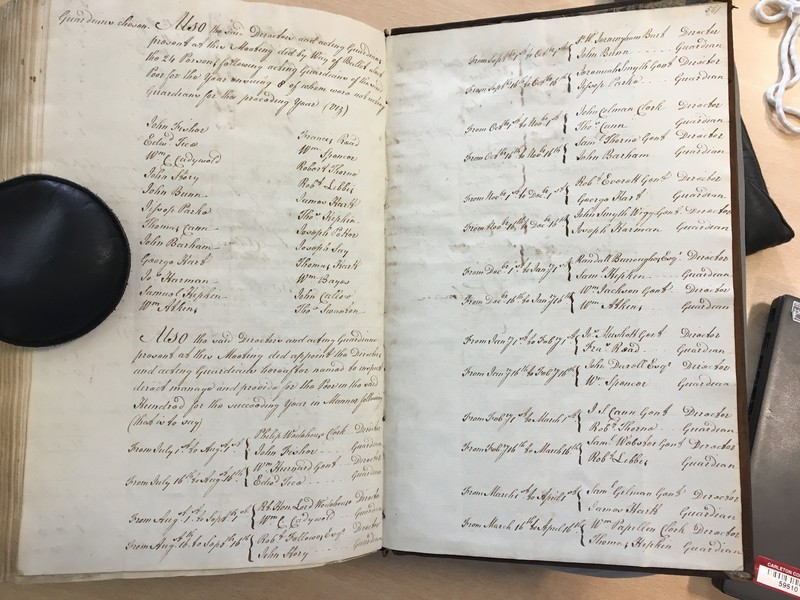 Guardians chosen. Also the said Directors and acting Guardians
present at this Meeting did by Way of Ballot elect
the 24 Persons following acting Guardians of the
Poor for the Year ensuing 8 of whom were not acting
Guardians for the preceding Year (Viz)
John Fisher
Edwd Tice
Wm C Cadywold
John Story
John Bunn
Jessop Parke
Thomas Cann
John Barham
George Hart
Jos Harman
Samuel Hepken
Wm Atkins
Frances Read
Wm Spencer
Robert Thorne
Robt Lebbe
James Hart
Thos Hepkin
Joseph Potter
Joseph Say
Thomas Hart
Wm Bayes
John Calver
Thos Swanton
Also the said Directors and acting Guardians
present at this Meeting did appoint the Directors
and acting Guardians hereafter named to inspect
direct manage and provide for the Poor in the said
Hundred for the succeeding Year in Manner following
(that is to say)
From July 1st to Augt 1st Philip Wodehouse Clerk Director
John Fisher Guardian
From July 16th to Augt 16th Wm Gent Director
Edwd Tice Guardian
From Augt 1st to Septr 1st Rt Hon Lord Wodehouse Director
Wm C Cadywold Guardian
From Augt 16th to Septr 16th Robt Fellowes Esqr Director
John Story Guardian
From Septr 1st to Octr 1st Sr Wm Jerningham Bart Director
John Bunn Guardian
From Septr 16th to Octr 16th Jeremiah Smyth Gent Director
Jessop Parke Guardian
From Octr 1st to Novr 1st John Colman Clerk Director
Thos Cann Guardian
From Octr 16th to Novr 16th Saml Thorne Gent Director
John Barham Guardian
From Novr 1st to Decr 1st Robt Everett Gent Director
George Hart Guardian
From Novr 16th to Decr 16th John Smyth Gent Director
Joseph Harman Guardian
From Decr 1st to Jany 1st Randall Burroughes Esqr Director
Saml Hepken Guardian
From Decr 16th to Jany 16th Wm Jackson Gent Director
Wm Atkins Guardian
From Jany 1st to Feby 1st Muskett Gent Director
Fras Read Guardian
From Jany 16th to Feby 16th John Darell Esqr Director
Wm Spencer Guardian
From Feby 1st to March 1st J S Cann Gent Director
Robt Thorne Guardian
From Feby 16th to March 16th Saml Webster Gent Director
Robt Lebbe Guardian
From March 1st to April 1st Saml Gilman Gent Director
James Hart Guardian
From March 16th to April 16th Wm Papillon Clerk Director
Thomas Hepkin Guardian
CARLETON CO